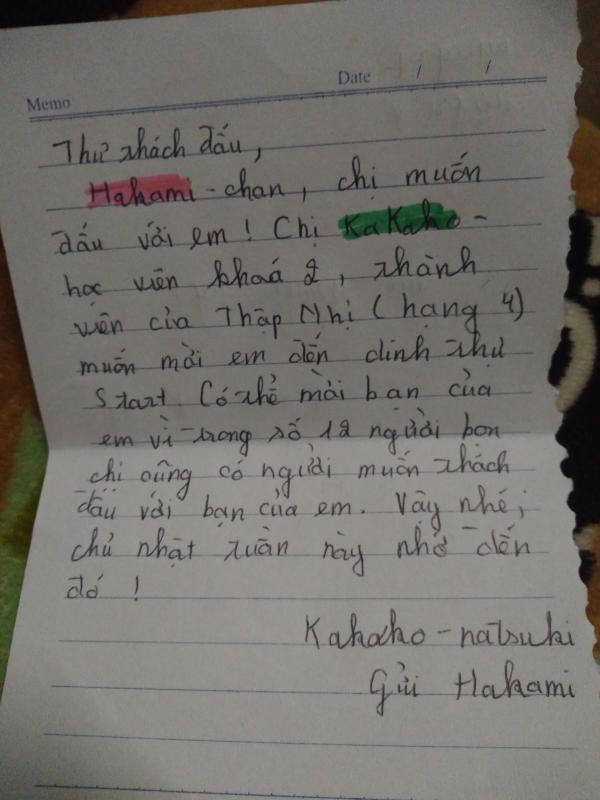 Memo
Date / /
Thư thách đấu,
Hakami-chan, chị muốn
đấu với em! Chị KaKaho -
học viên khoá 2, thành
viên của Thập Nhị (hạng 4)
muốn mời em đến dinh thự
Start. Có thể mời bạn của
em vì trong số 12 người bọn
chị cũng có người muốn thách
đấu với bạn của em. Vậy nhé,
chủ nhật tuần này nhớ đến
đó !
Kakaho-natsuki
Gửi Hakami